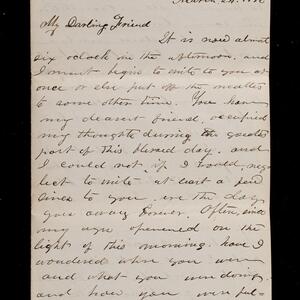 March 24,
My Darling Friend
It is now almost
six o'clock in the afternoon, and
I must begin to write to you at
once or else put off the matter
to some other time. You have
my dearest friend, occupied
my thoughts during the greater
part of this blessed day, and
I could not if I would, neg-
lect to write at least a few
lines to you, ere the day
goes away forever. Often, since
my eyes opened on the
light of this morning, have I
wondered where you were
and what you were doing,
and how you were